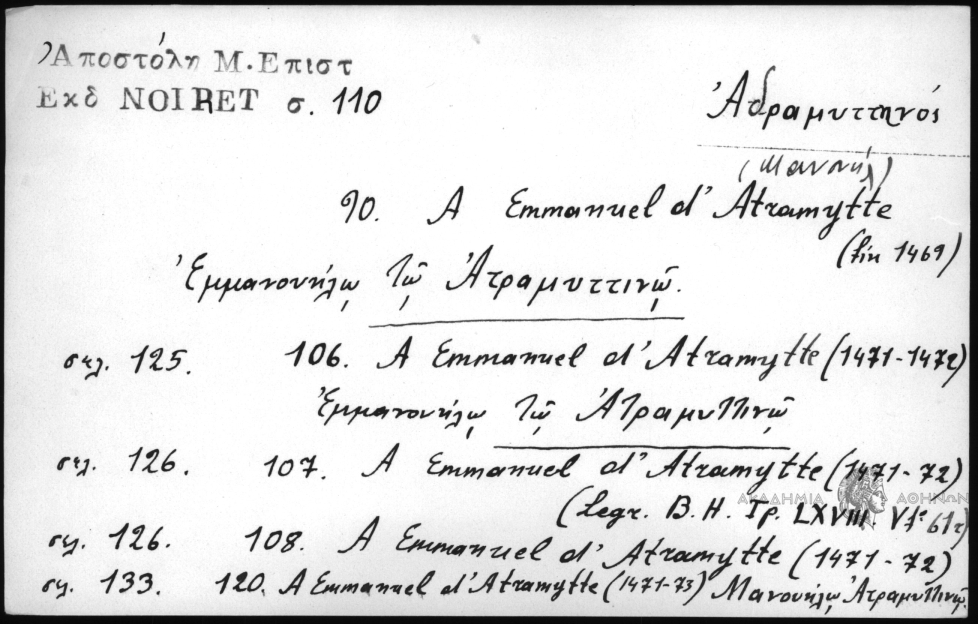 Ἀποστόλη Μ. Επιστ
Εκδ NOIRET σ. 110
Ἀδραμυττηνός
(Μανουήλ)
90. A Emmanuel d'Atramytte
(fin 1469)
Ἐμμανουήλῳ τῷ Ἀτραμυττινῷ.
σελ. 125. 106. A Emmanuel d'Atramytte (1471-1472)
Ἐμμανουήλῳ τῷ Ἀτραμυττινῷ
σελ. 126. 107. A Emmanuel d'Atramytte (1471-72)
(Legr. B. H. Τρ. LXVIII,
ΑΚΑΔΗΜΙΑ ΑΘΗΝΩΝ
σελ. 126. 108. A Emmanuel d'Atramytte (1471-72)
σελ. 133. 120. A Emmanuel d'Atramytte (1471-73) Μανουήλῳ Ἀτραμυττινῷ.